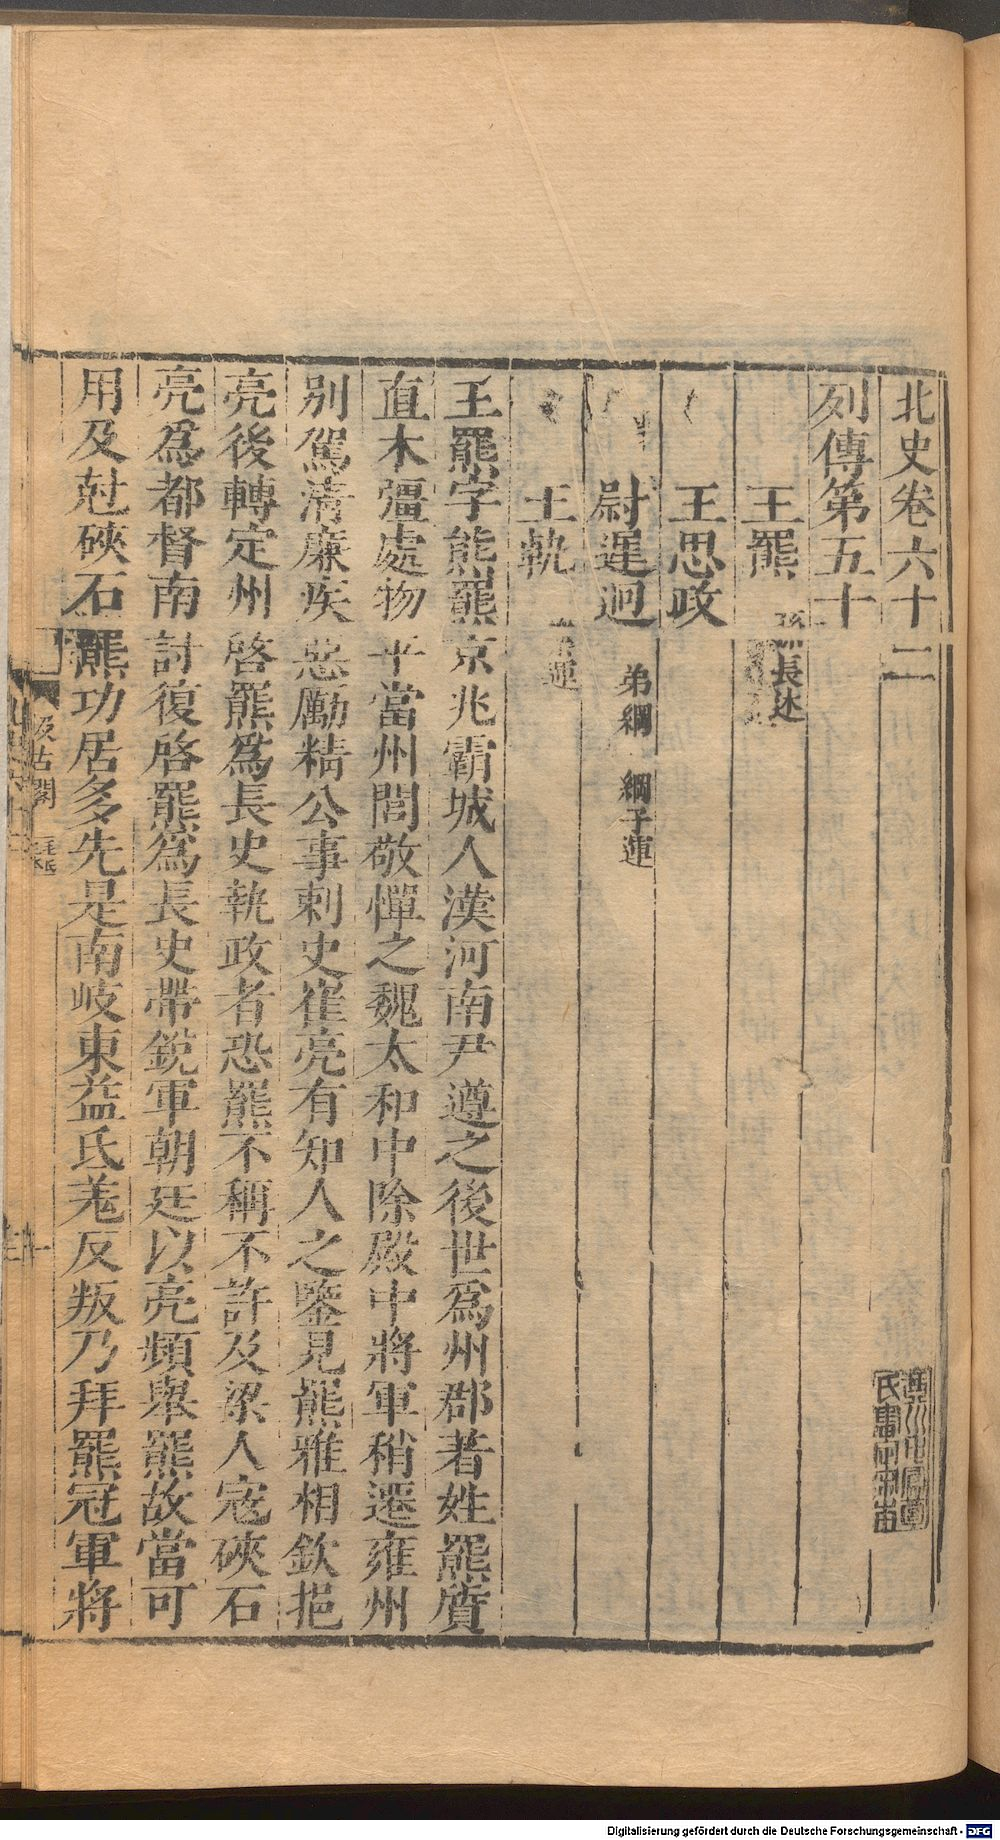 北史卷六十二
列傳第五十
王羆 孫長述
王思政
尉遲迥 弟綱 綱子運
王軌
王羆字熊羆京兆霸城人漢河南尹遵之後世爲州郡著姓羆質
直木彊處物平當州閭敬憚之魏太和中除殿中將軍稍遷雍州
別駕清廉疾惡勵精公事刺史崔亮有知人之鑒見羆雅相欽挹
亮後轉定州啓羆爲長史執政者恐羆不稱不許及梁人寇硤石
亮爲都督南討復啓羆爲長史帶銳軍朝廷以亮頻舉羆故當可
用及尅硤石羆功居多先是南岐東益氐羌反叛乃拜羆冠軍將
汲古閣
Digitalisierung gefördert durch die Deutsche Forschungsgemeinschaft - DFG